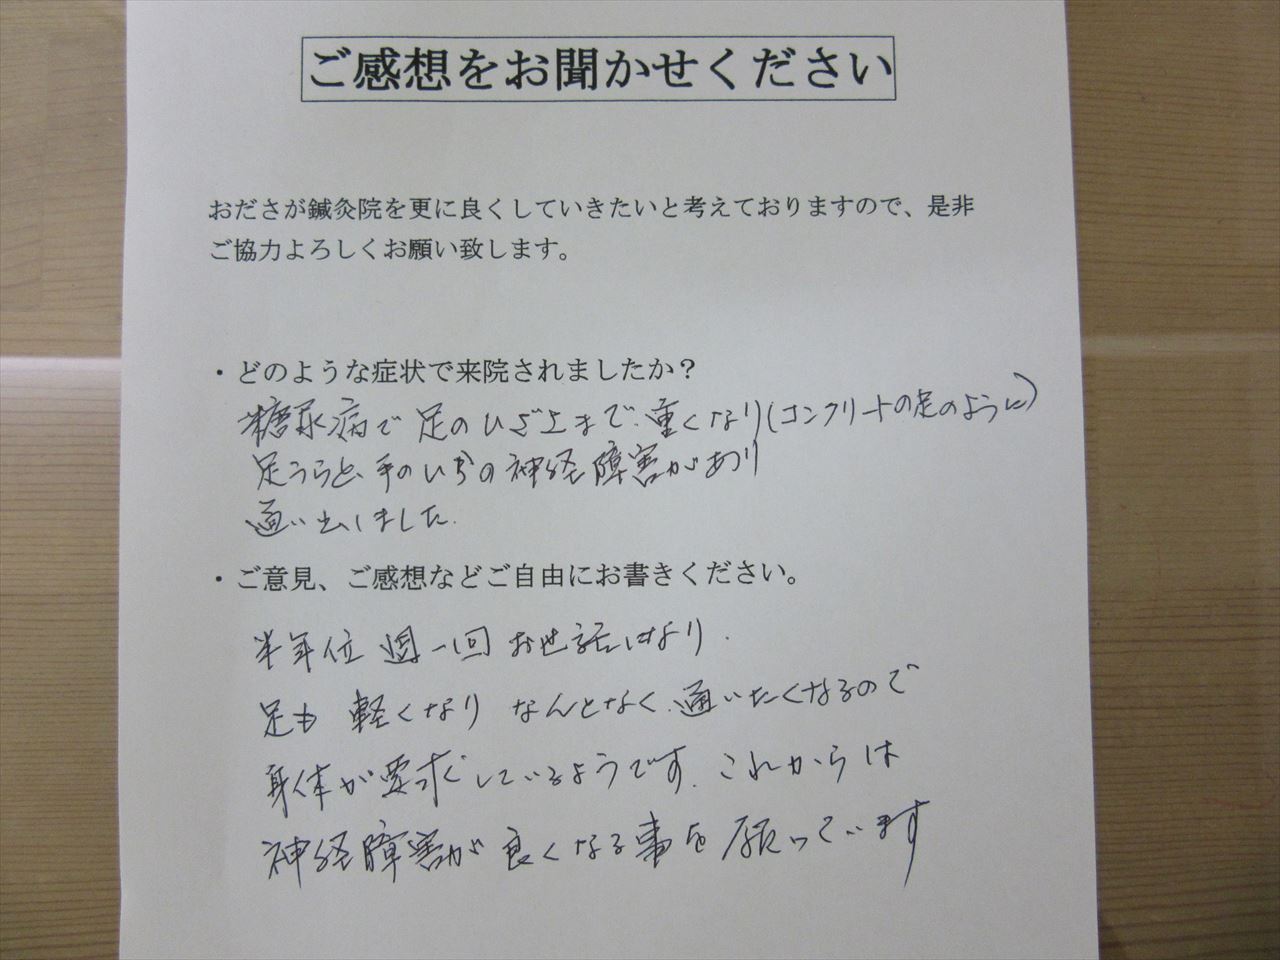 ご感想をお聞かせください
おださが鍼灸院を更に良くしていきたいと考えておりますので、是非
ご協力よろしくお願い致します。
・どのような症状で来院されましたか?
糖尿病で足のひざ上まで重くなり(コンクリートの足のように)
足うらと手のいちぶの神経障害があり
通い出しました.
・ご意見、ご感想などご自由にお書きください。
半年位 週一回 お世話になり.
足も 軽くなり なんとなく.通いたくなるので
身体が要求しているようです.これからは
神経障害が良くなる事を願っています